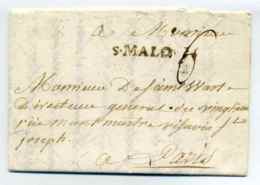 a Monsieur
S·MALO
Monsieur De
Directeur general des vingtiemes
rue montmartre vis a vis St
joseph.
a Paris